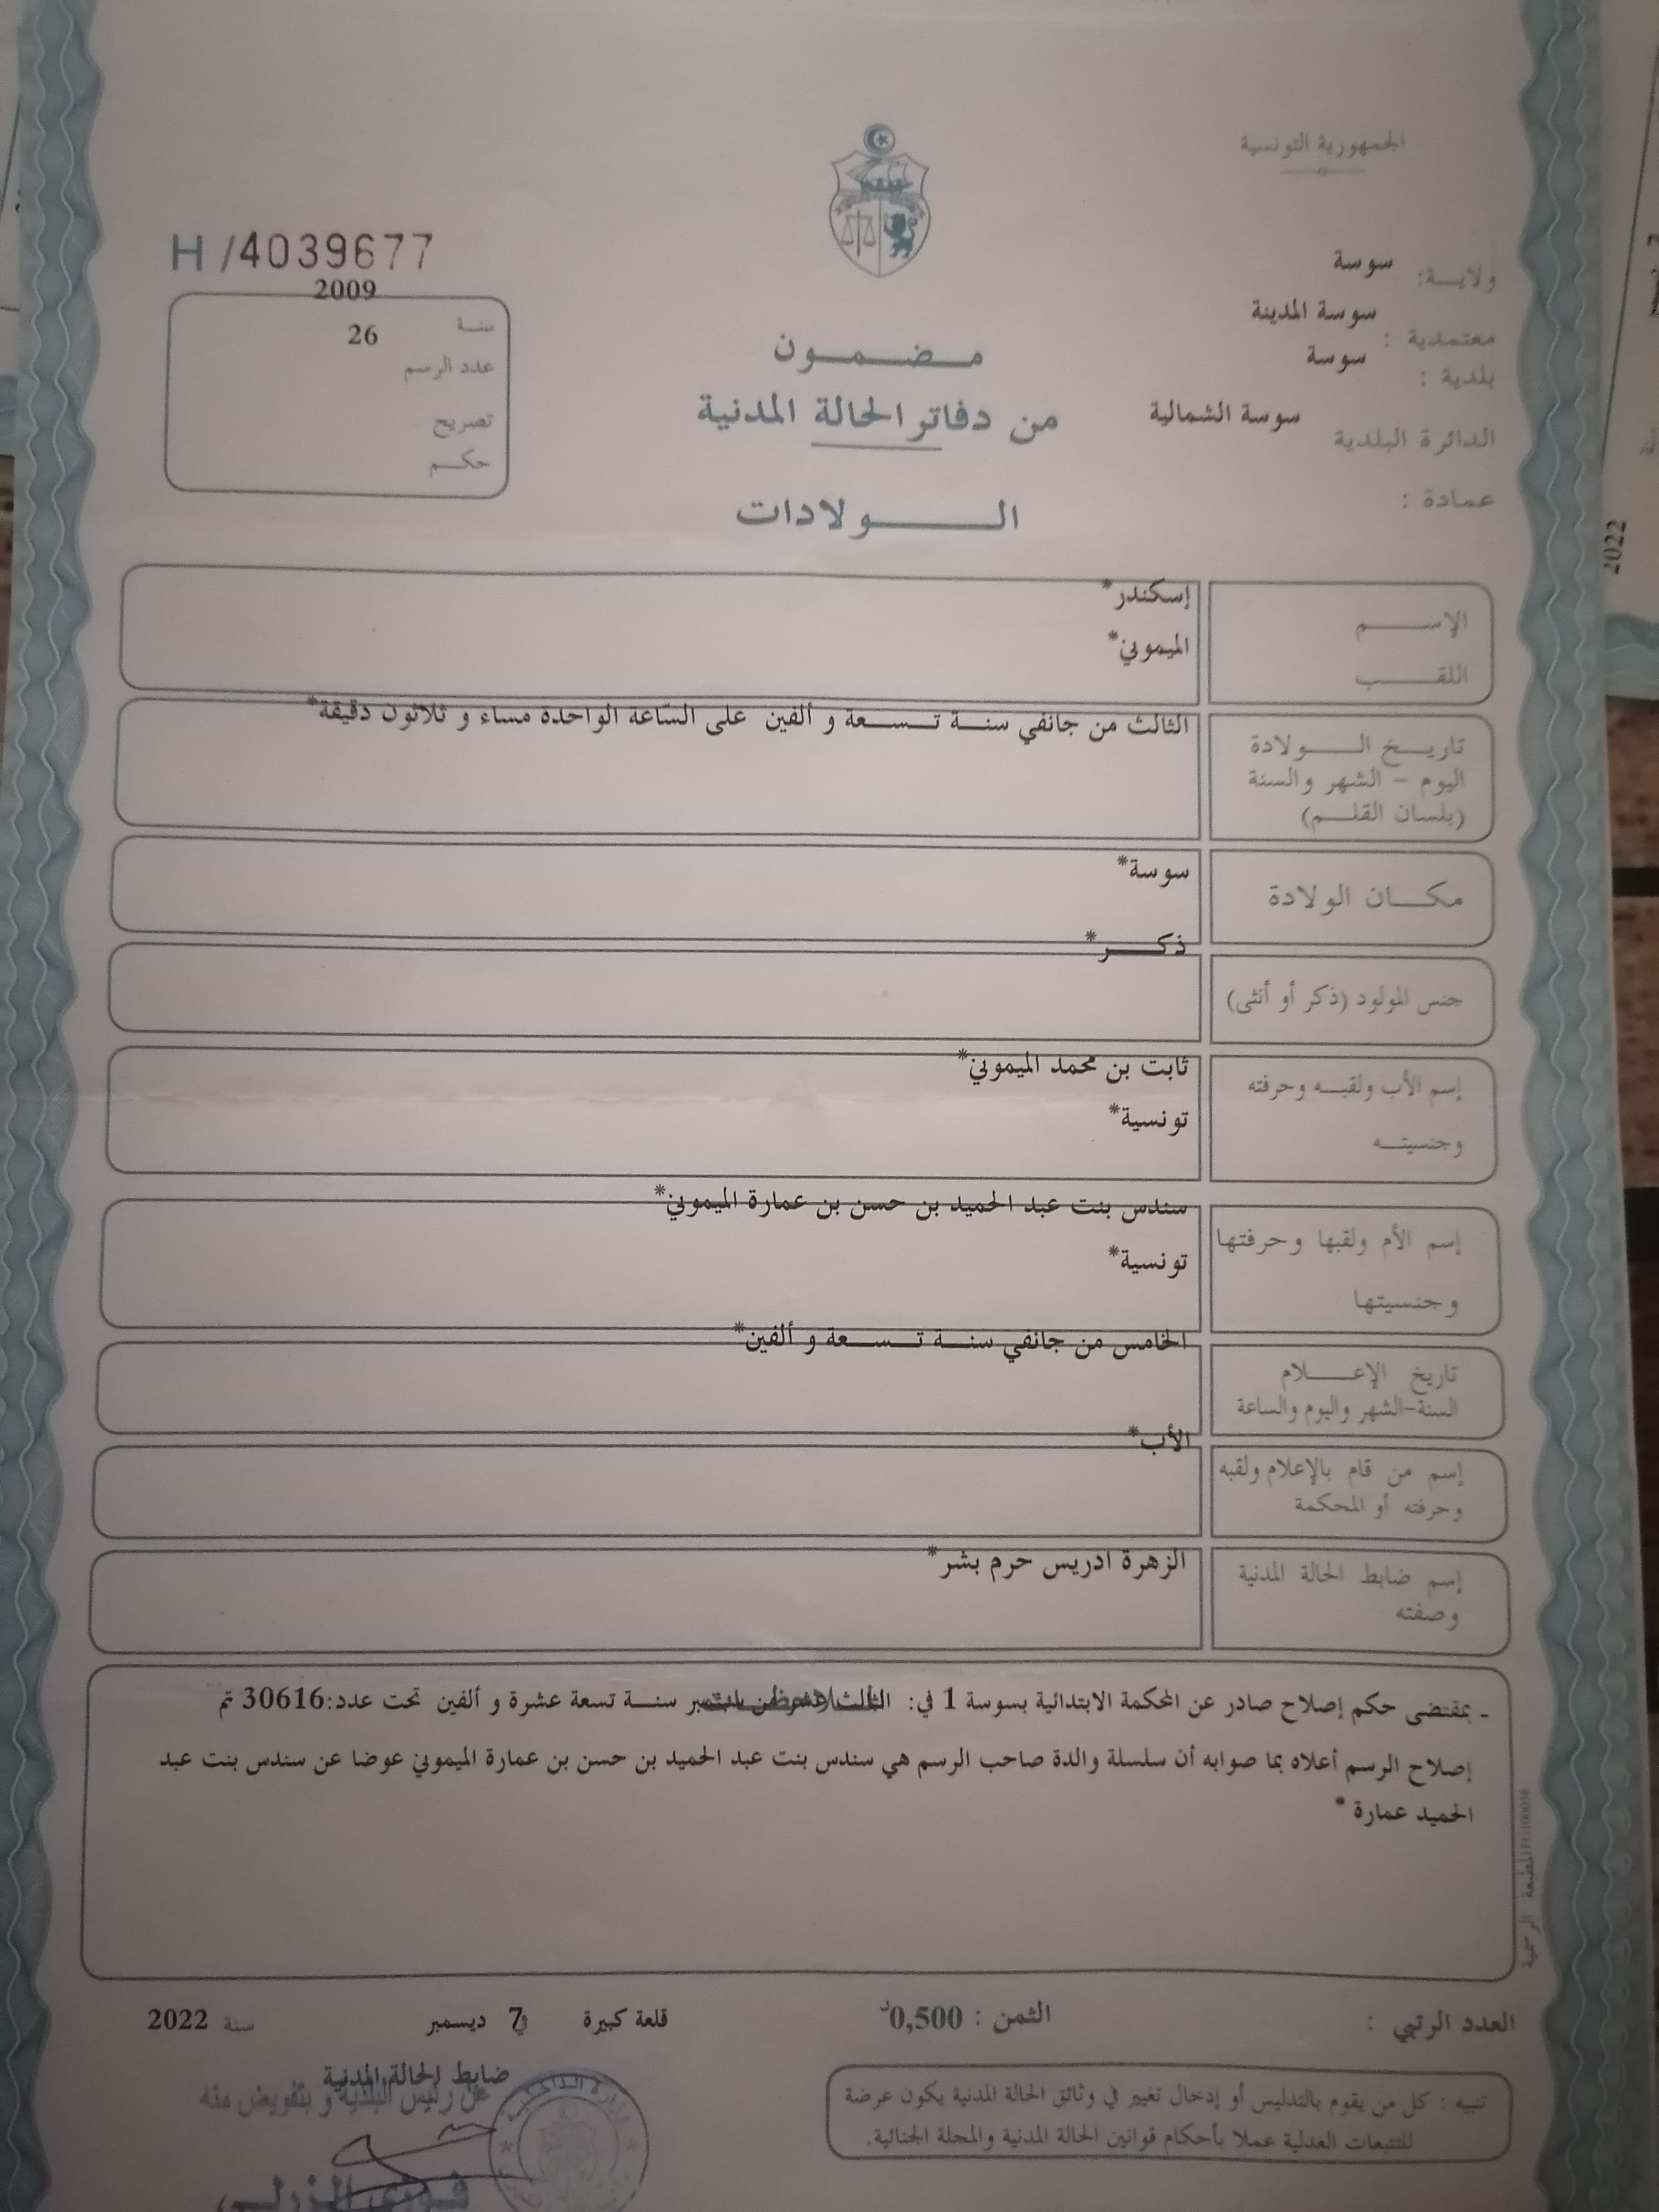 الجمهورية التونسية
ولايــة: سوسة
معتمدية : سوسة المدينة
بلدية : سوسة
الدائرة البلدية سوسة الشمالية
عمادة :
H /4039677
2009
سنــة
26
عدد الرسم
تصريح
حكــم
مـضـمـون
من دفاتر الحالة المدنية
الـــولادات
الإســـم إسكندر*
اللقــب الميموني*
تاريــخ الــولادة
اليوم - الشهر والسنة
(بلسان القلــم)
الثالث من جانفي سنــة تــســعة و ألفين على السّاعة الواحدة مساء و ثلاثون دقيقة*
مكــان الولادة سوسة*
جنس المولود (ذكر أو أنثى) ذكــر*
إسم الأب ولقبــه وحرفته ثابت بن محمد الميموني*
وجنسيتــه تونسية*
إسم الأم ولقبها وحرفتها سندس بنت عبد الحميد بن حسن بن عمارة الميموني*
وجنسيتها تونسية*
تاريخ الإعــلام
السنة-الشهر واليوم والساعة
الخامس من جانفي سنــة تــســعة و ألفين*
إسم من قام بالإعلام ولقبه
وحرفته أو المحكمة
الأب*
إسم ضابط الحالة المدنية
وصفته
الزهرة ادريس حرم بشر*
- بمقتضى حكم إصلاح صادر عن المحكمة الابتدائية بسوسة 1 في: سنــة تسعة عشرة و ألفين تحت عدد:30616 تم
إصلاح الرسم أعلاه بما صوابه أن سلسلة والدة صاحب الرسم هي سندس بنت عبد الحميد بن حسن بن عمارة الميموني عوضا عن سندس بنت عبد
الحميد عمارة *
المطبعة الرسمية
العدد الرتبي :
الثمن : 0,500د
قلعة كبيرة في 7 ديسمبر سنة 2022
ضابط الحالة المدنية
عن رئيس البلدية و بتفويض منه
تنبيه : كل من يقوم بالتدليس أو إدخال تغيير في وثائق الحالة المدنية يكون عرضة
للتتبعات العدلية عملا بأحكام قوانين الحالة المدنية والمجلة الجنائية.
2022